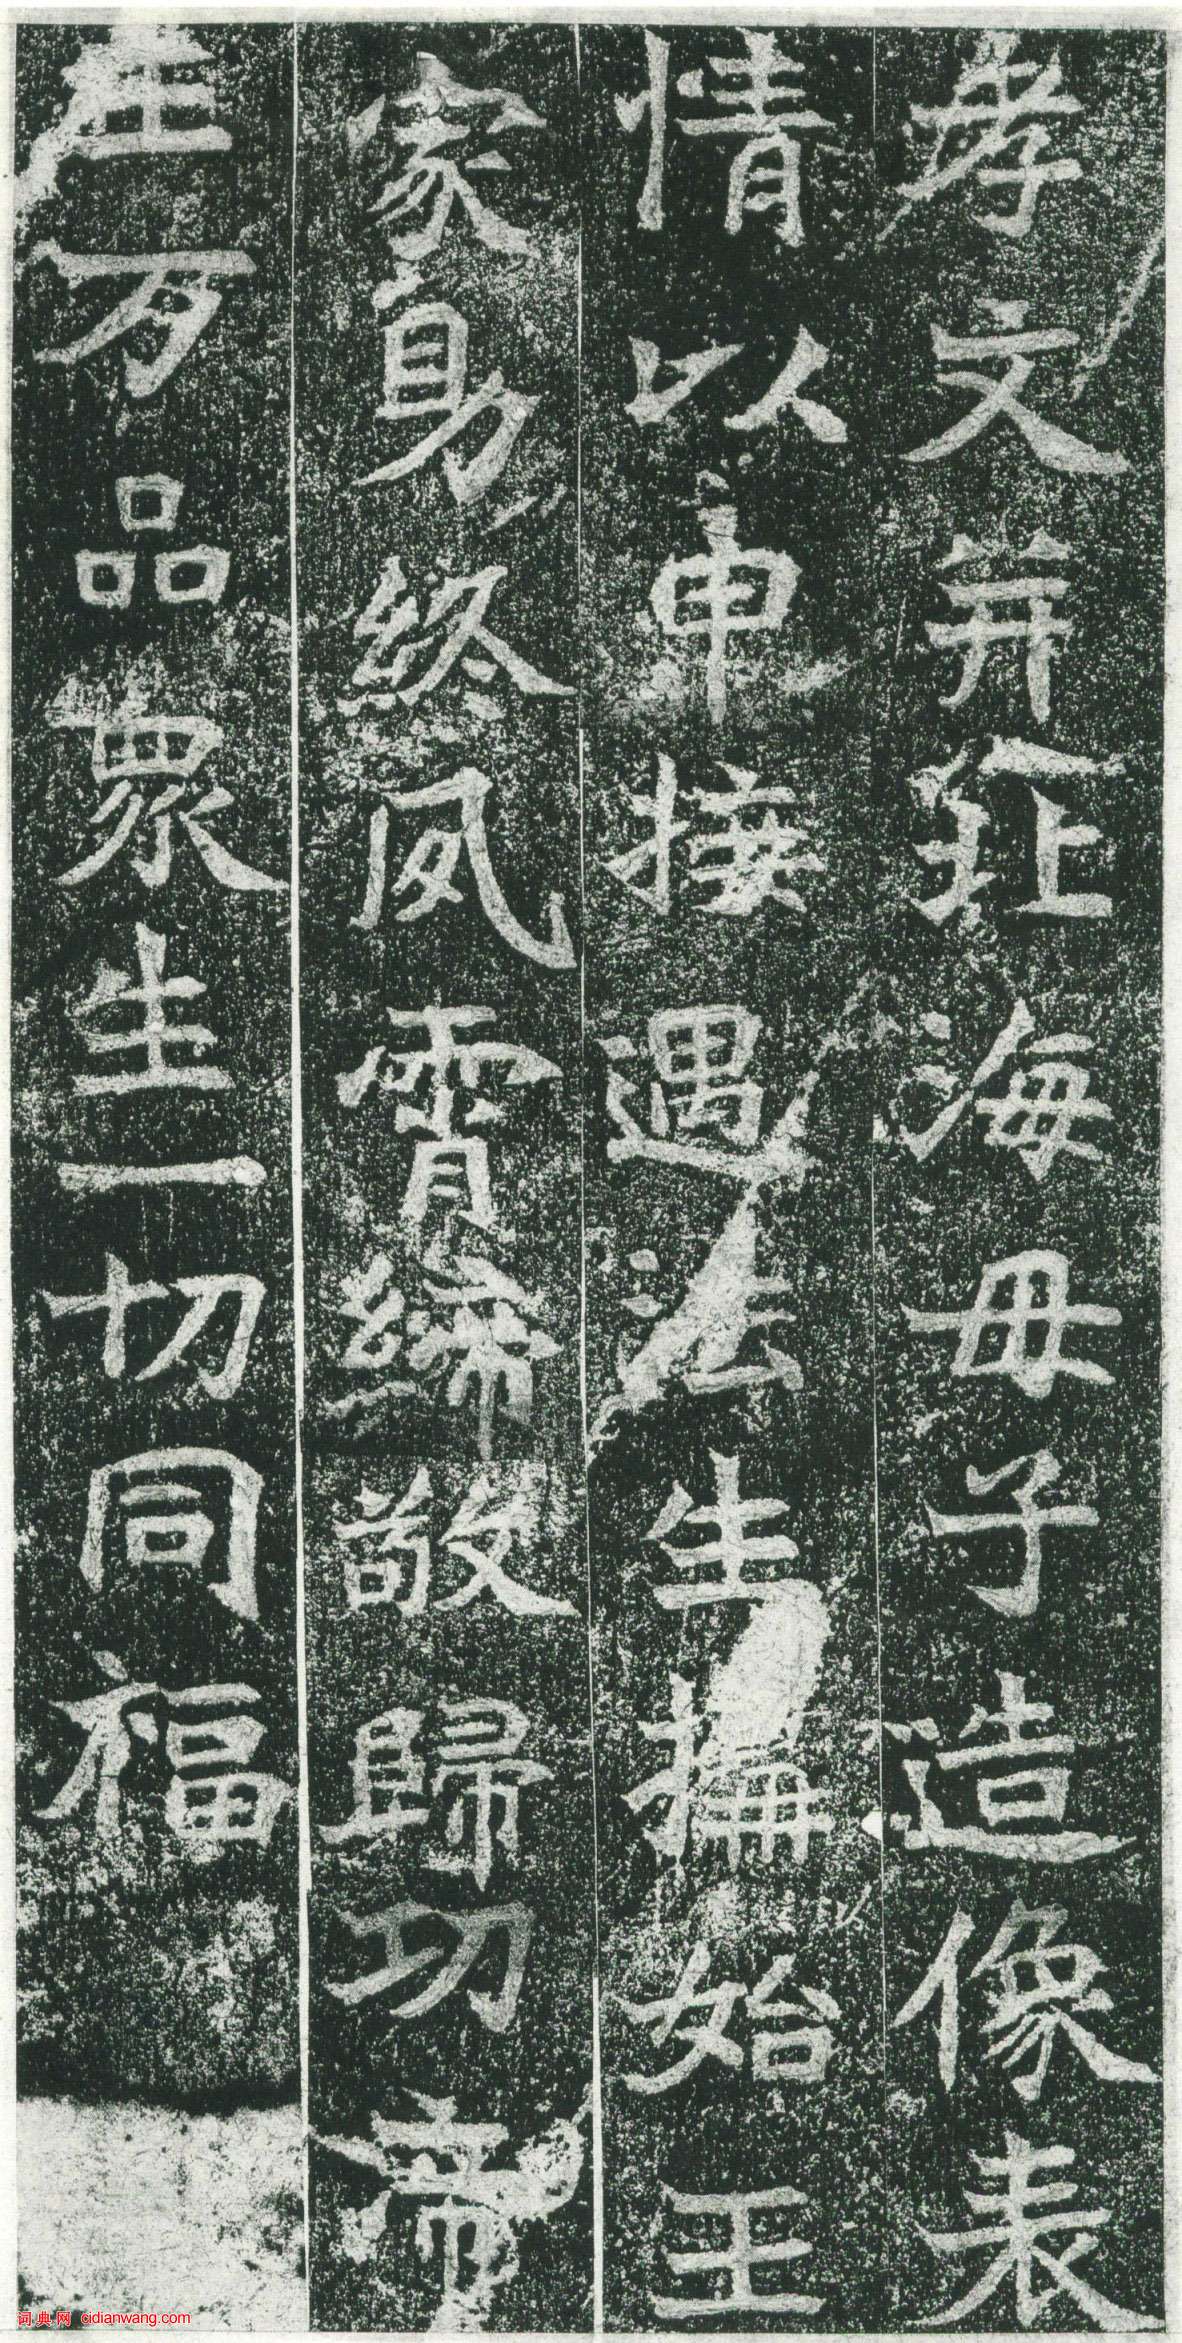 孝文并征海母子造像表
情以申接遇法生構始王
家助終夙霄締敬歸功帝
王万品眾生一切同福
词典网 cidianwang.com